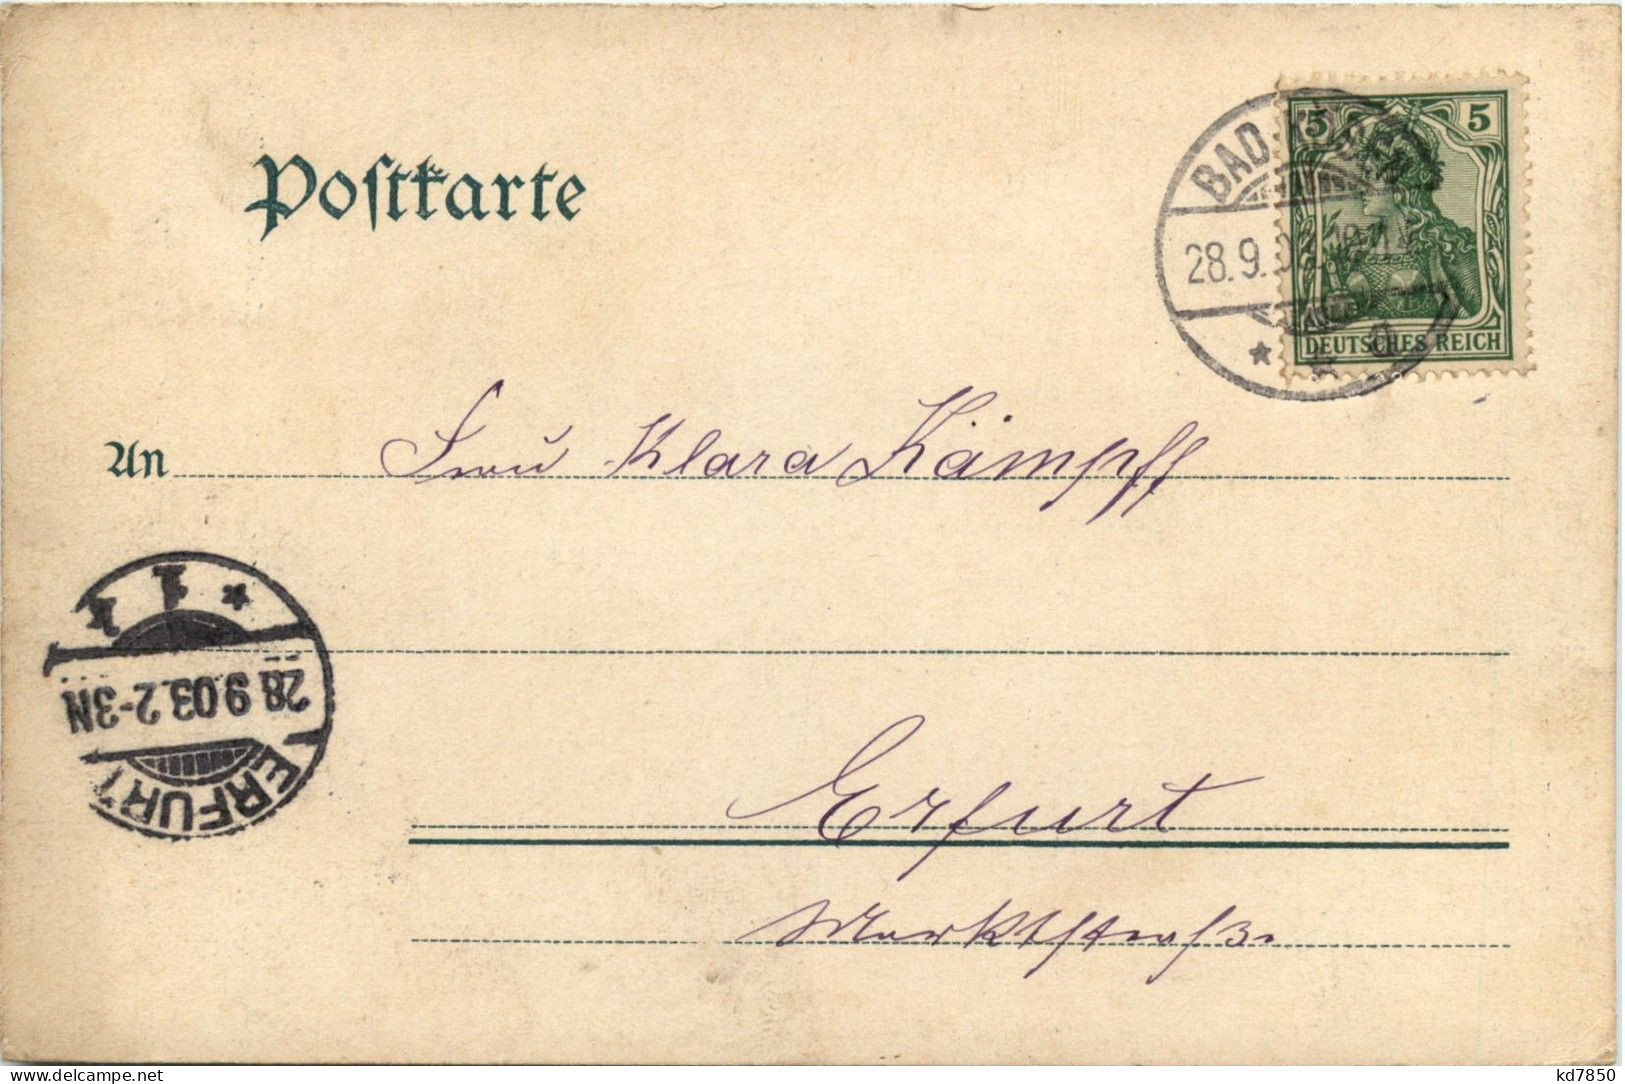 Postkarte
5 5
BAD
28.9.
DEUTSCHES REICH
An Frau Klara Kämpff
* 1
28 9 03.2-3N
ERFURT
Erfurt
Marktstraße
www.delcampe.net
kd7850